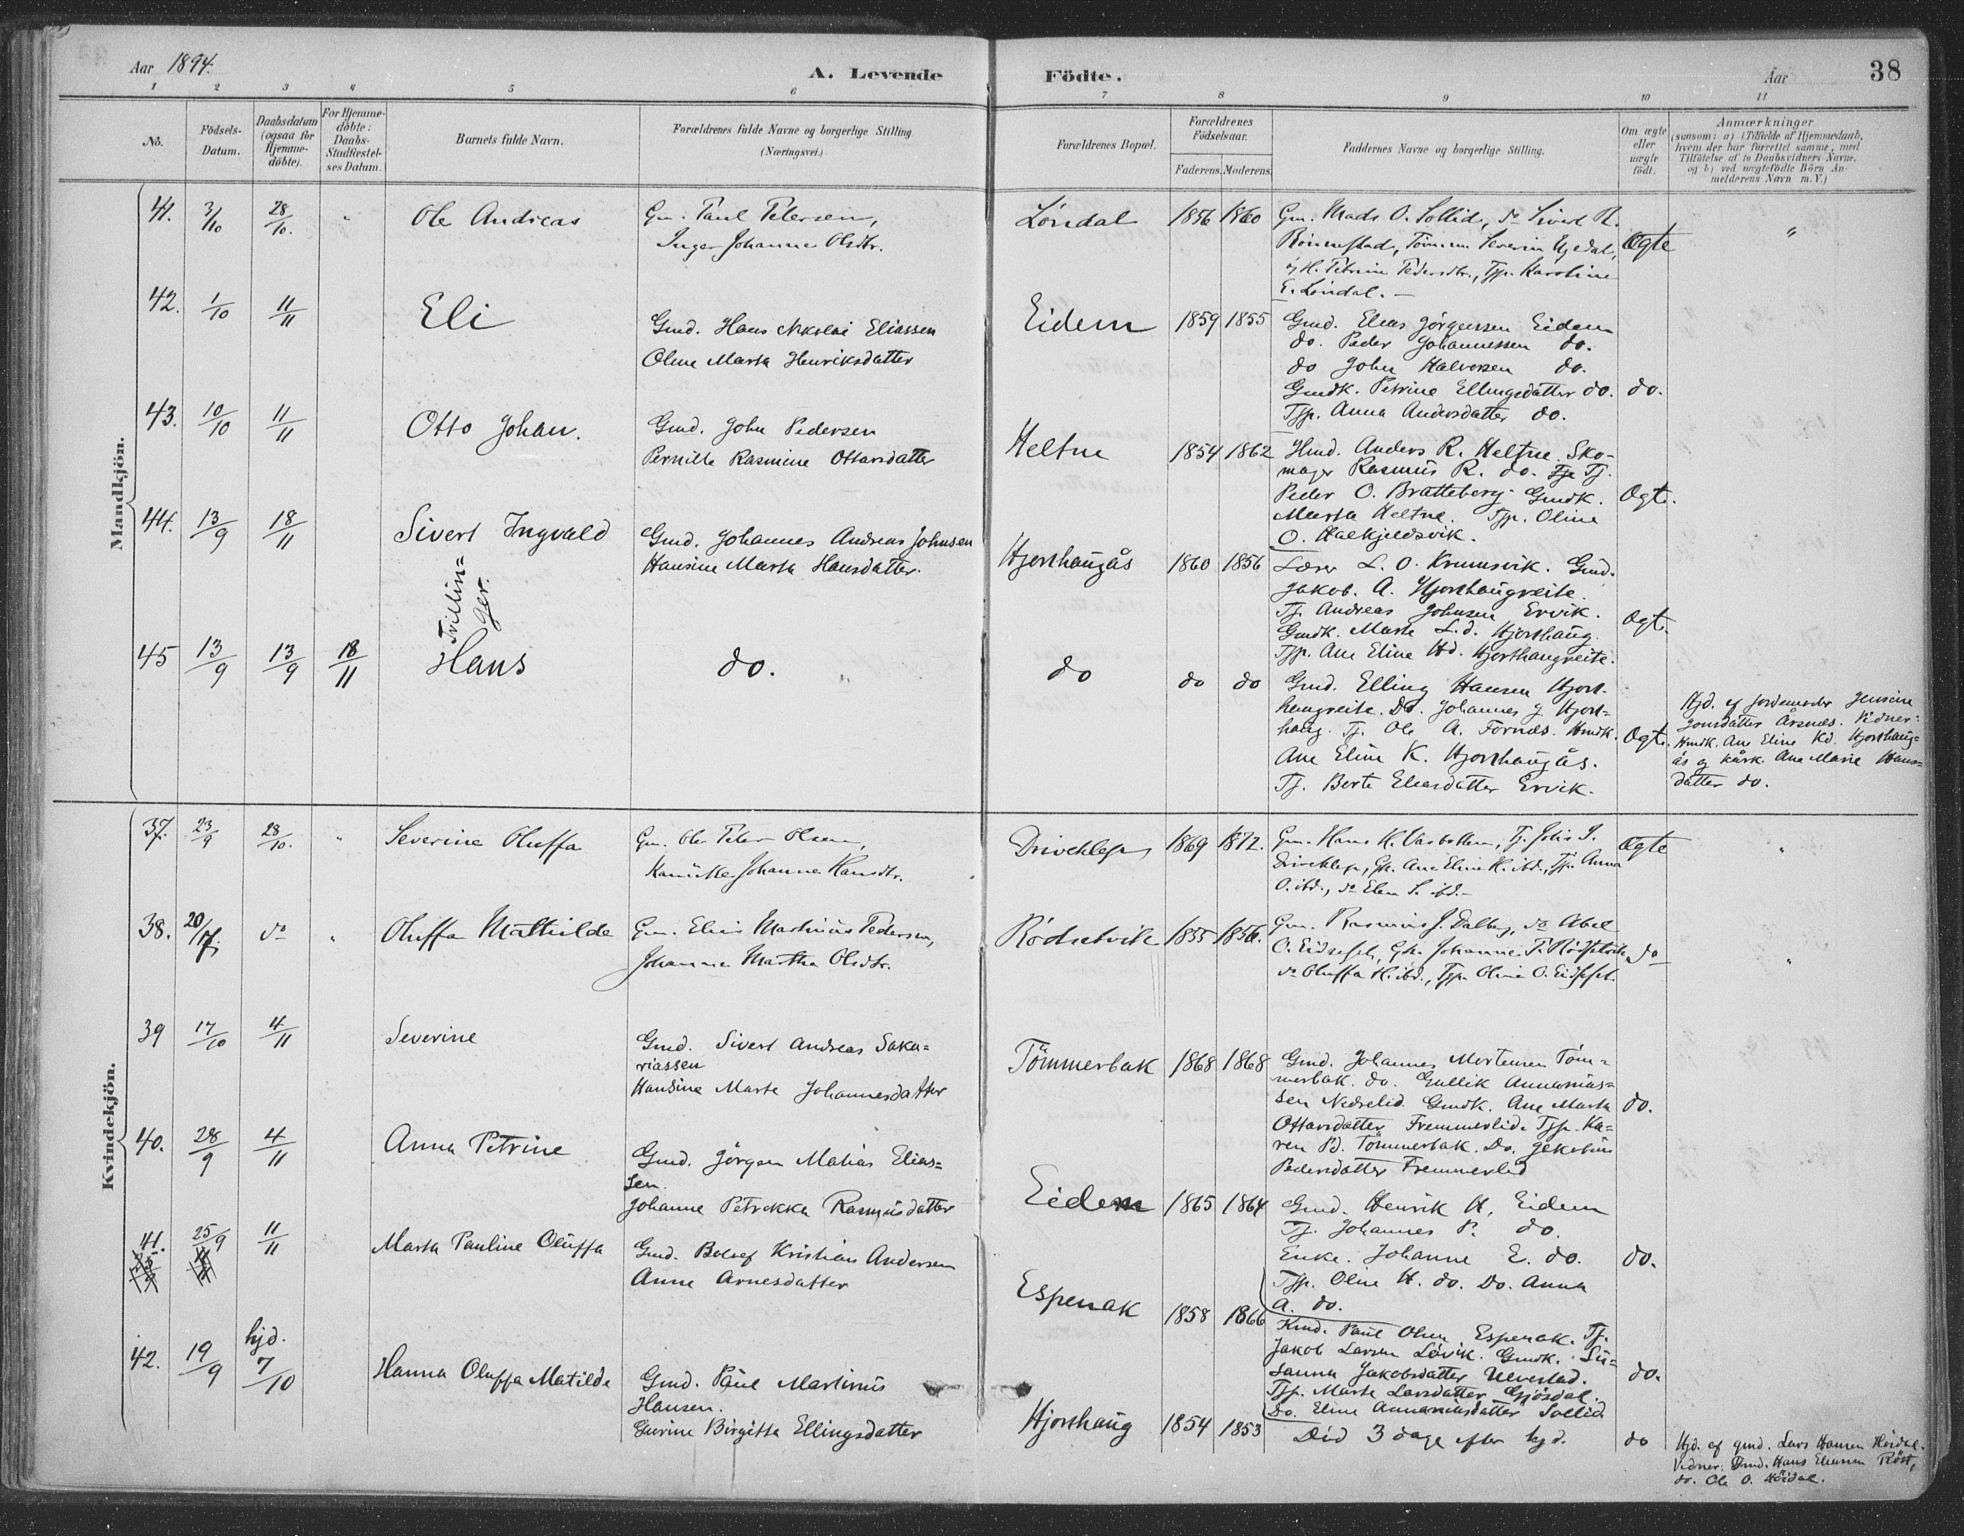 Aar 1894.
A. Levende Födte.
Aar
38
1 2 3 4 5 6 7 8 9 10 11
No.
Födsels-
Datum.
Daabsdatum
(ogsaa for
Hjemme-
döbte).
For Hjemme-
döbte:
Daabs-
Stadfæstel-
ses Datum.
Barnets fulde Navn.
Forældrenes fulde Navne og borgerlige Stilling.
(Næringsvei.)
Forældrenes Bopæl.
Forældrenes
Födselsaar.
Faderens. Moderens.
Faddernes Navne og borgerlige Stilling.
Om ægte
eller
uægte
födt.
Anmærkninger
(saasom: a) i Tilfælde af Hjemmedaab,
hvem der har forrettet samme, med
Tilföielse af to Daabsvidners Navne,
og b) ved uægtefödte Börn An-
melderens Navn m. V.)
Mandkjön.
41. 3/10 28/10. " Ole Andreas
Gm. Paul Petersen,
Inger Johanne Olsdtr.
Löndal 1856 1860
Gm. Mads O. Sollid, do Sivert R.
Rönnestad, Tömm. Severin Ugedal,
E. Löndal. –
Ægte "
42. 1/10 11/11 Eli
Gmd. Hans Nikolai Eliassen
Oline Marta Henriksdatter
Eidem 1859 1855
Gmd. Elias Jörgensen Eidem
do. Peder Johannessen do.
do John Halvorsen do.
Gmdk. Petrine Ellingsdatter do.
Tjp. Anna Andersdatter do.
do.
43. 10/10 11/11 Otto Johan.
Gmd. John Pedersen
Pernille Rasmine Ottarsdatter
Heltne 1854 1862
Hmd. Anders R. Heltne. Sko-
mager Rasmus R. do. Tj.
Peder O. Bratteberg. Gmdk.
Marta Heltne. Tjp. Oline
O. Halkjeldsvik.
Ægte.
44. 13/9 18/11 Sivert Ingvald
Gmd. Johannes Andreas Johnsen
Hansine Marta Hansdatter.
Hjorthaugås 1860 1856
Lærer L. O. Krumsvik. Gmd.
Jakob. A. Hjorthaugreite.
Tj. Andreas Johnsen Ervik.
Gmdk. Marte L.d. Hjorthaug.
Tjp. Ane Eline Hd. Hjorthaugreite.
Ægte.
Tvillin-
ger.
45 13/9 13/9 18/11 Hans do. do do do
Gmd. Elling Hansen Hjort-
haugreite. Do. Johannes J Hjort-
haug. Tj. Ole A. Fornæs. Hmdk.
Ane Eline K. Hjorthaugås.
Tj. Berte Eliasdatter Ervik.
Ægte.
Hjd. af Jordemoder Jensine
Jonsdatter Årsnes. Vidner:
Hmdk. Ane Eline Kd. Hjorthaug-
ås og kårk. Ane Marie Hans-
datter do.
Kvindekjön.
37. 23/9 28/10. " Severine Oluffa
Gm. Ole Peter Olsen,
Johanne Hansdtr.
Driveklep 1869 1872.
Gm. Hans K. Vasbotten, Tj. S.
Driveklep, Gk. Ane Eline K. ibd., Tjp. Anna
O. ibd., do Elen S. ibd. –
Ægte "
38. 20/7. do " Oluffa Mathilde
Gm. Elias Martinus Pedersen,
Johanne Martha Olsdtr.
Rödsetvik 1855 1856.
Gm. Rasmus J. Dalberg, do Abel
O. Eidseset, Gk. Johanne P. Rödsetvik,
do Oluffa K. ibd., Tjp. Oline O. Eidseset.
do "
39 17/10 4/11 Severine
Gmd. Sivert Andreas Saka-
riassen
Hansine Marta Johannesdatter
Tömmerbak 1868 1868
Gmd. Johannes Mortensen Töm-
merbak. do. Gullik Annanias-
sen Nedrelid. Gmdk. Ane Marta
Ottarsdatter Fremmerlid. Tjp. Ka-
ren Pd. Tömmerbak. Do. Jekobine
Pedersdatter Fremmerlid
do.
40. 28/9 4/11 Anna Petrine
Gmd. Jörgen Matias Elias-
sen.
Johanne Petrikka Rasmusdatter
Eidem 1865 1864
Gmd. Henrik H. Eidem
Tj. Johannes P. do.
Enke. Johanne E. do.
Tjp. Oline H. do. Do. Anna
A. do.
do.
41. 25/9 11/11 Marta Pauline Oluffa
Gmd. Bolsef Kristian Andersen
Anne Arnesdatter
Espenak 1858 1866
Kmd. Paul Olsen Espenak. Tj.
Jakob Larsen Løvik. Gmdk. Su-
sanna Jakobsdatter Ulvestad.
Tjp. Marte Larsdatter Gjösdal.
Do. Eline Annaniasdatter Sollid
do.
42. 19/9 hjd. 7/10 Hanna Oluffa Matilde
Gmd. Paul Martinus
Hansen.
Gurine Birgitta Ellingsdatter
Hjorthaug 1854 1853
Död 3 dage efter hjd.
do
Hjd. af gmd. Lars Hansen Höidal.
Vidner: Gmd. Hans Eliassen Röst,
do. Ole O. Höidal.